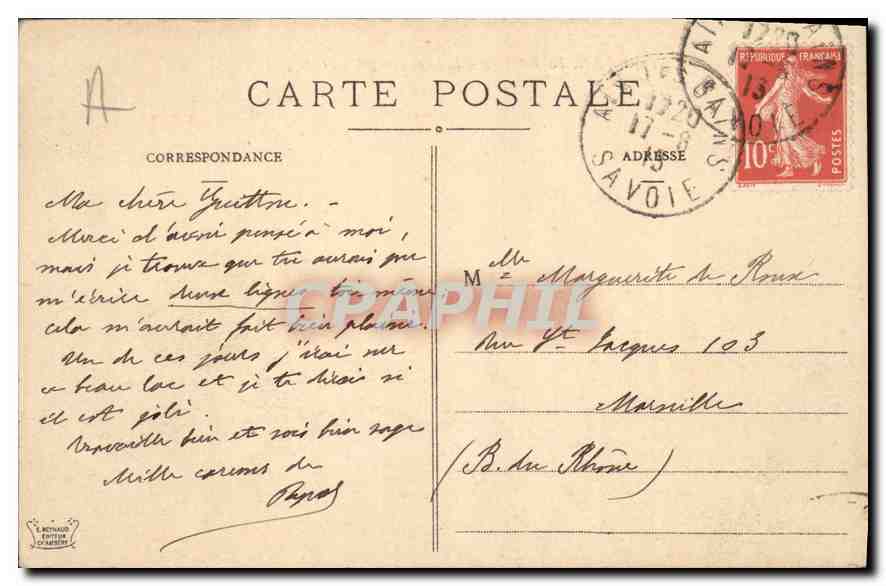 A
CARTE POSTALE
CORRESPONDANCE
ADRESSE
REPUBLIQUE FRANÇAISE
10c
POSTES
BAINS
1720
17-8
13
SAVOIE
Ma chère
Merci d'avoir pensé à moi,
mais je trouve que tu aurais pu
m'écrire deux lignes toi même
cela m'aurait fait bien plaisir.
Un de ces jours j'irai sur
ce beau lac et je te dirai si
il est joli.
Travaille bien et sois bien sage
Mille caresses de
Papa
Mlle Marguerite de Roux
Rue St Jacques 103
Marseille
(B. du Rhône)
CPAPHIL
E. REYNAUD
EDITEUR
CHAMBERY